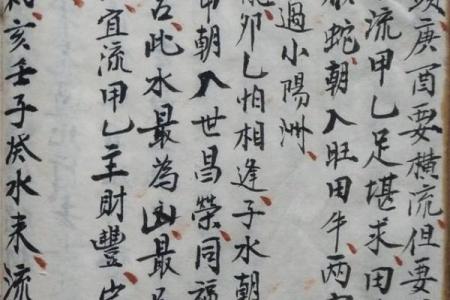 庚酉要橫流但要
流甲乙足堪求用
蛇朝入旺用牛兩
過小陽洲
卯乙怕相逢子水朝
朝入世昌榮同福
此水最為凶最
宜流甲乙主財豐
亥壬子癸水来流